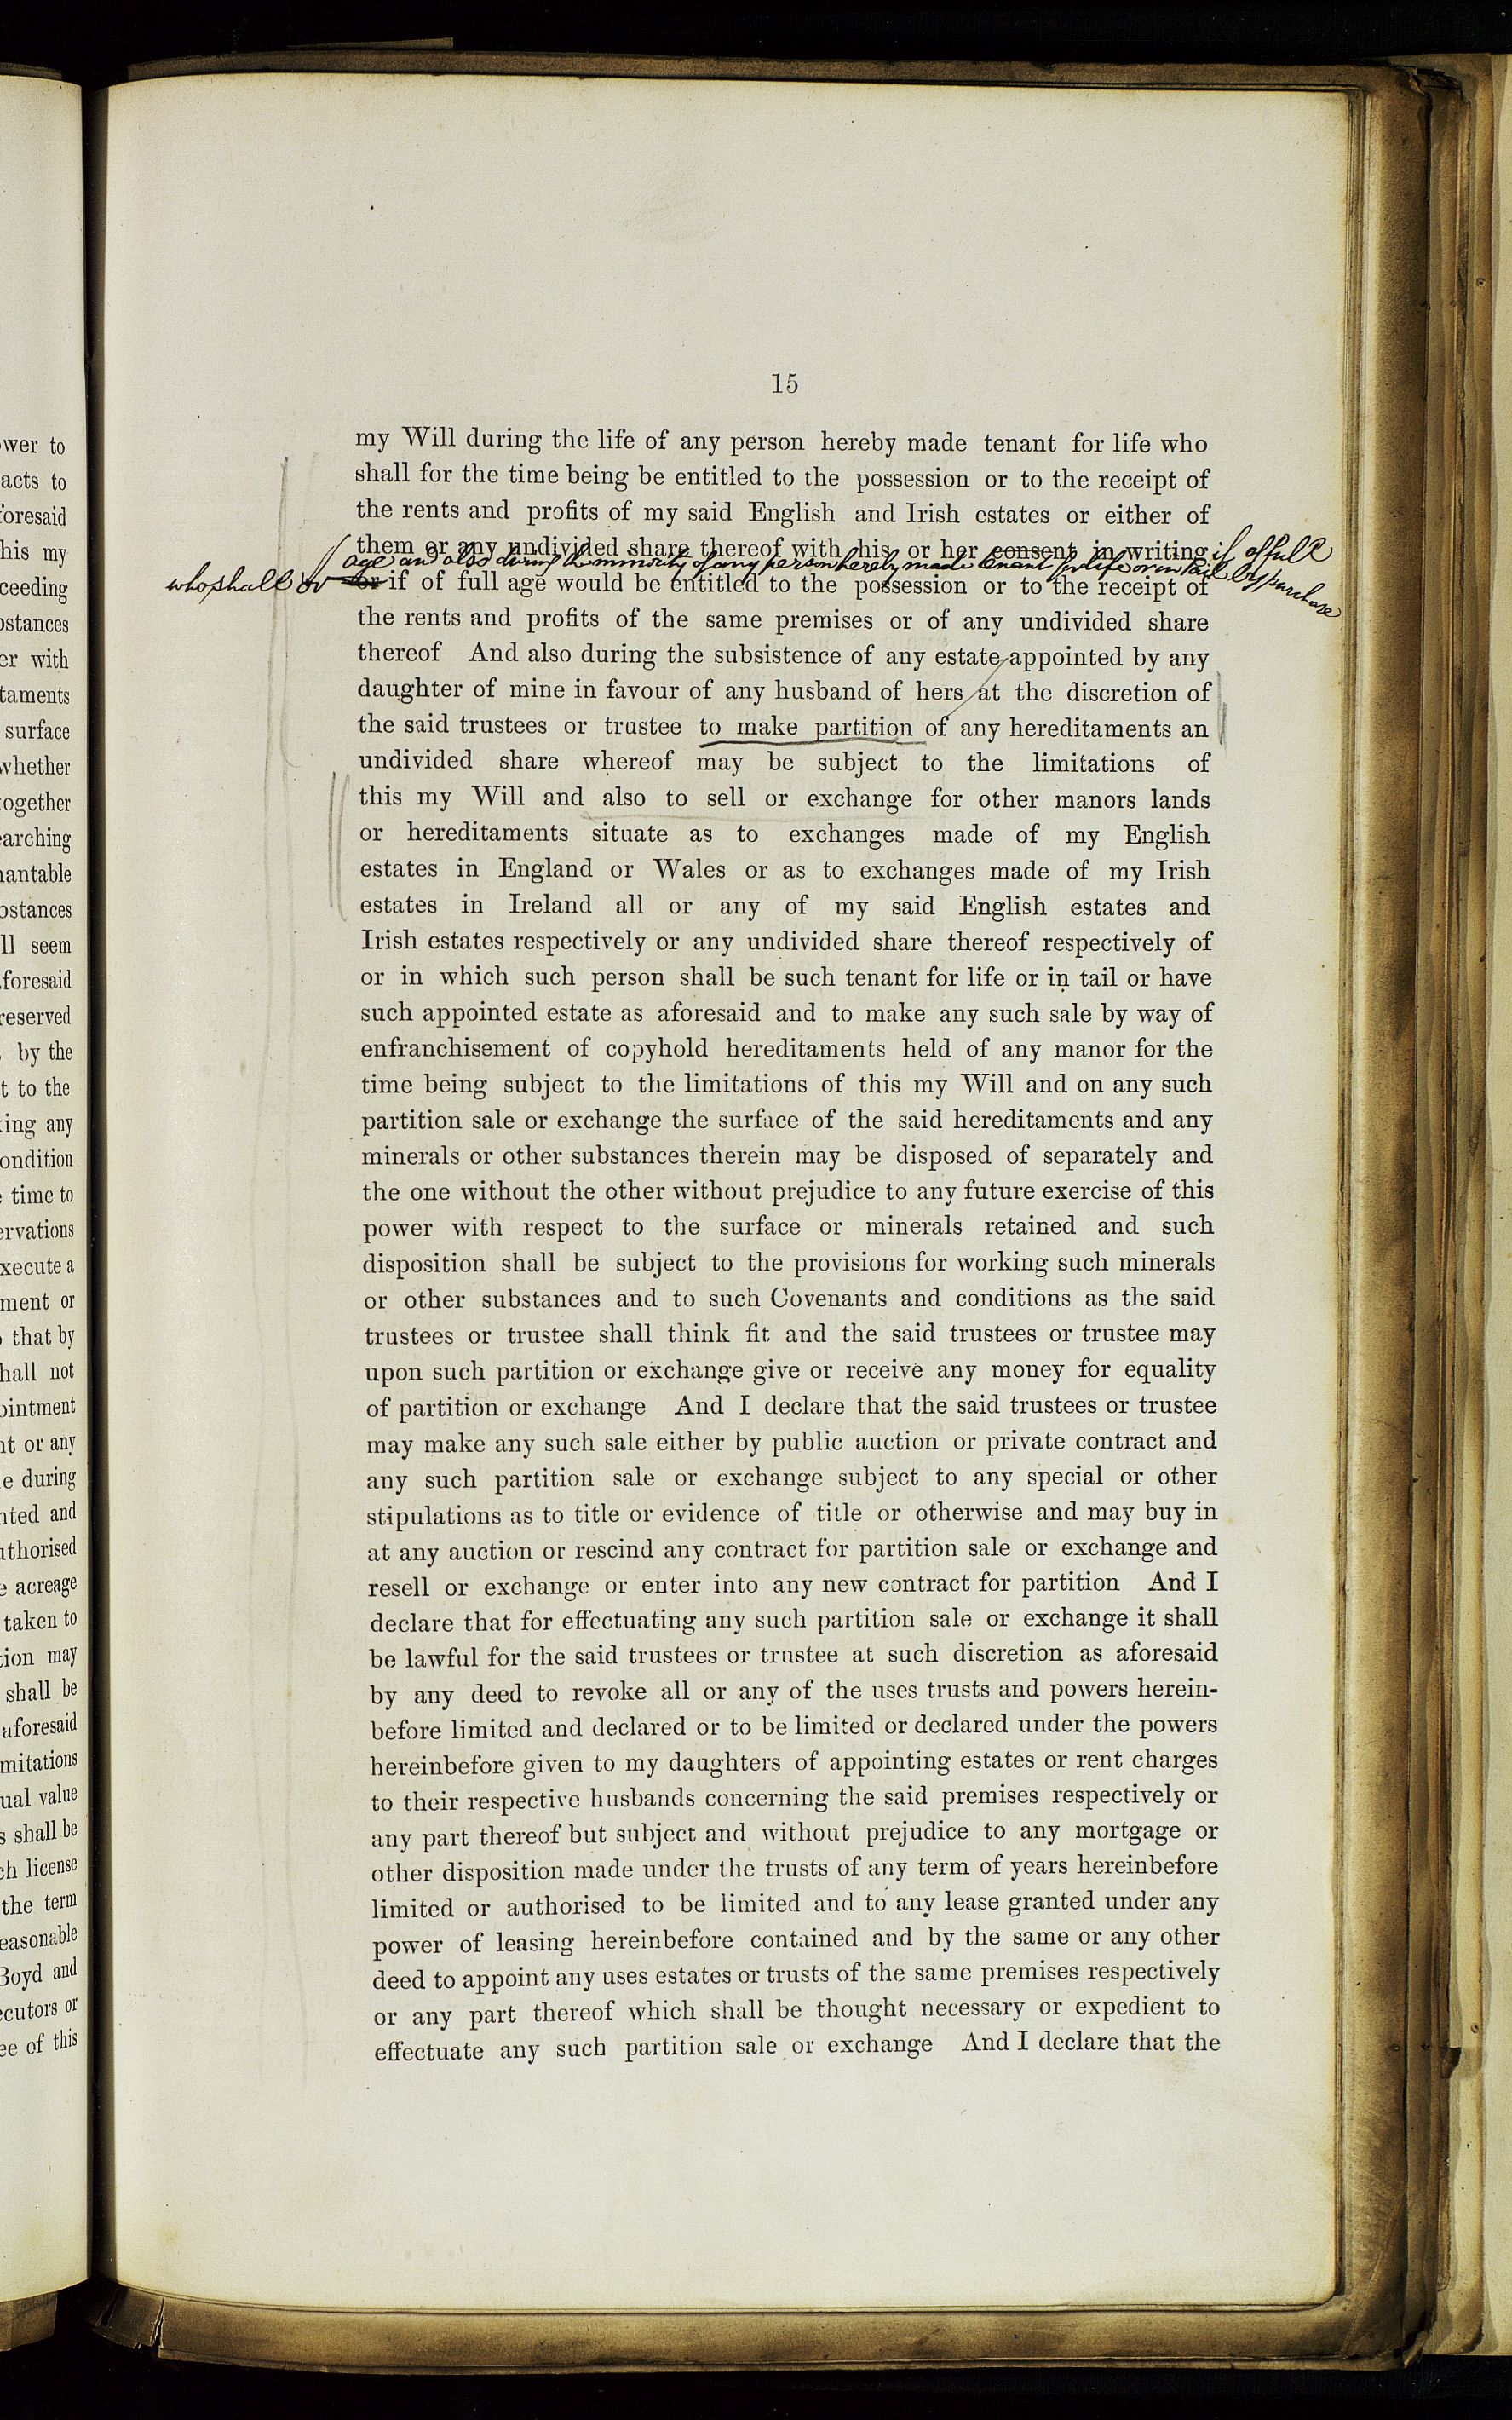 wer to
acts to
foresaid
his my
ceeding
ostances
er with
taments
surface
whether
together
earching
nantable
ostances
ll seem
foresaid
reserved
by the
t to the
ing any
ondition
time to
ervations
xecute a
ment or
that by
hall not
ointment
nt or any
e during
nted and
uthorised
acreage
taken to
tion may
shall be
aforesaid
mitations
ual value
s shall be
ch license
the term
easonable
Boyd and
ecutors or
ee of this
15
my Will during the life of any person hereby made tenant for life who
shall for the time being be entitled to the possession or to the receipt of
the rents and profits of my said English and Irish estates or either of
them or any undivided share thereof with his or her consent in writing if of full
age and also during the minority of any person hereby made tenant for life or in tail by purchase
who shall or or if of full age would be entitled to the possession or to the receipt of
the rents and profits of the same premises or of any undivided share
thereof And also during the subsistence of any estate appointed by any
daughter of mine in favour of any husband of hers at the discretion of
the said trustees or trustee to make partition of any hereditaments an
undivided share whereof may be subject to the limitations of
this my Will and also to sell or exchange for other manors lands
or hereditaments situate as to exchanges made of my English
estates in England or Wales or as to exchanges made of my Irish
estates in Ireland all or any of my said English estates and
Irish estates respectively or any undivided share thereof respectively of
or in which such person shall be such tenant for life or in tail or have
such appointed estate as aforesaid and to make any such sale by way of
enfranchisement of copyhold hereditaments held of any manor for the
time being subject to the limitations of this my Will and on any such
partition sale or exchange the surface of the said hereditaments and any
minerals or other substances therein may be disposed of separately and
the one without the other without prejudice to any future exercise of this
power with respect to the surface or minerals retained and such
disposition shall be subject to the provisions for working such minerals
or other substances and to such Covenants and conditions as the said
trustees or trustee shall think fit and the said trustees or trustee may
upon such partition or exchange give or receive any money for equality
of partition or exchange And I declare that the said trustees or trustee
may make any such sale either by public auction or private contract and
any such partition sale or exchange subject to any special or other
stipulations as to title or evidence of title or otherwise and may buy in
at any auction or rescind any contract for partition sale or exchange and
resell or exchange or enter into any new contract for partition And I
declare that for effectuating any such partition sale or exchange it shall
be lawful for the said trustees or trustee at such discretion as aforesaid
by any deed to revoke all or any of the uses trusts and powers herein-
before limited and declared or to be limited or declared under the powers
hereinbefore given to my daughters of appointing estates or rent charges
to their respective husbands concerning the said premises respectively or
any part thereof but subject and without prejudice to any mortgage or
other disposition made under the trusts of any term of years hereinbefore
limited or authorised to be limited and to any lease granted under any
power of leasing hereinbefore contained and by the same or any other
deed to appoint any uses estates or trusts of the same premises respectively
or any part thereof which shall be thought necessary or expedient to
effectuate any such partition sale or exchange And I declare that the